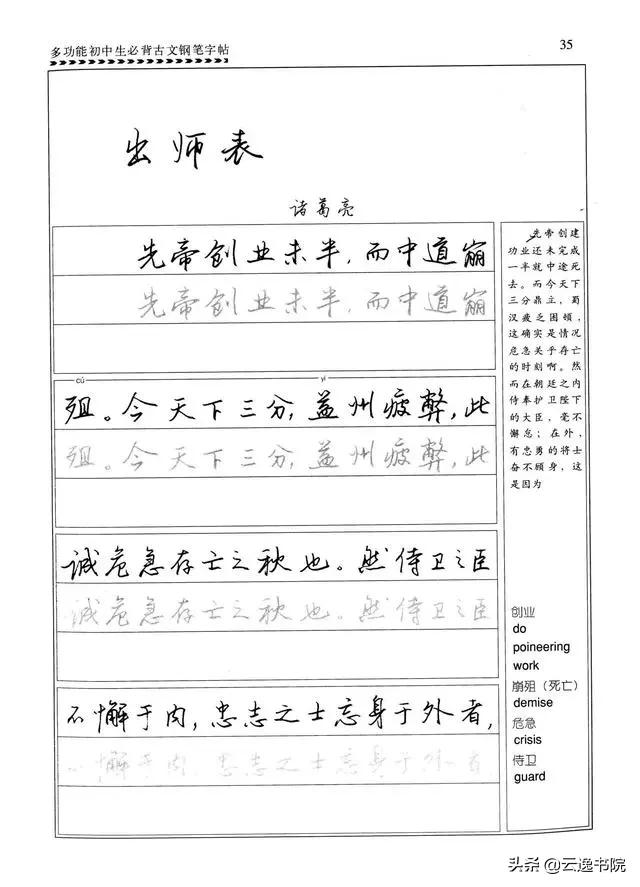 多功能初中生必背古文钢笔字帖
35
出师表
诸葛亮
先帝创业未半,而中道崩
先帝创业未半,而中道崩
cú yì
殂。今天下三分,益州疲弊,此
殂。今天下三分,益州疲弊,此
诚危急存亡之秋也。然侍卫之臣
诚危急存亡之秋也。然侍卫之臣
不懈于内,忠志之士忘身于外者,
不懈于内,忠志之士忘身于外者
先帝创建
功业还未完成
一半就中途死
去。而今天下
三分鼎立,蜀
汉疲乏困顿,
这确实是情况
危急关乎存亡
的时刻啊。然
而在朝廷之内
侍奉护卫陛下
的大臣,毫不
懈怠;在外,
有忠勇的将士
奋不顾身,这
是因为
创业
do
poineering
work
崩殂(死亡)
demise
危急
crisis
侍卫
guard
头条@云逸书院